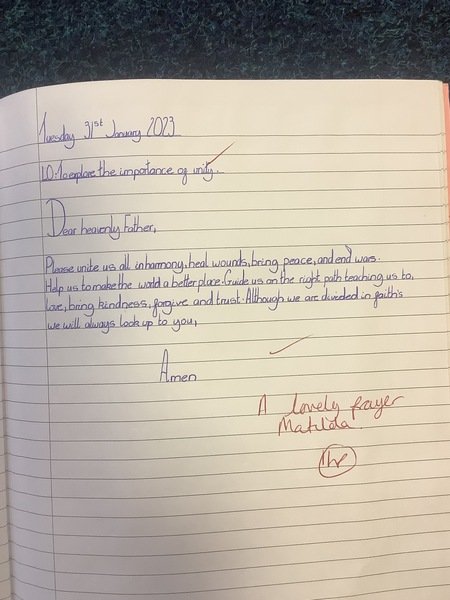 Tuesday 31st January 2023
LO: To explore the importance of unity.
Dear heavenly Father,
Please unite us all in harmony, heal wounds, bring peace, and end wars.
Help us to make the world a better place. Guide us on the right path teaching us to,
love, bring kindness, forgive and trust. Although we are divided in faith's
we will always look up to you,
Amen
A lovely prayer
Matilda.